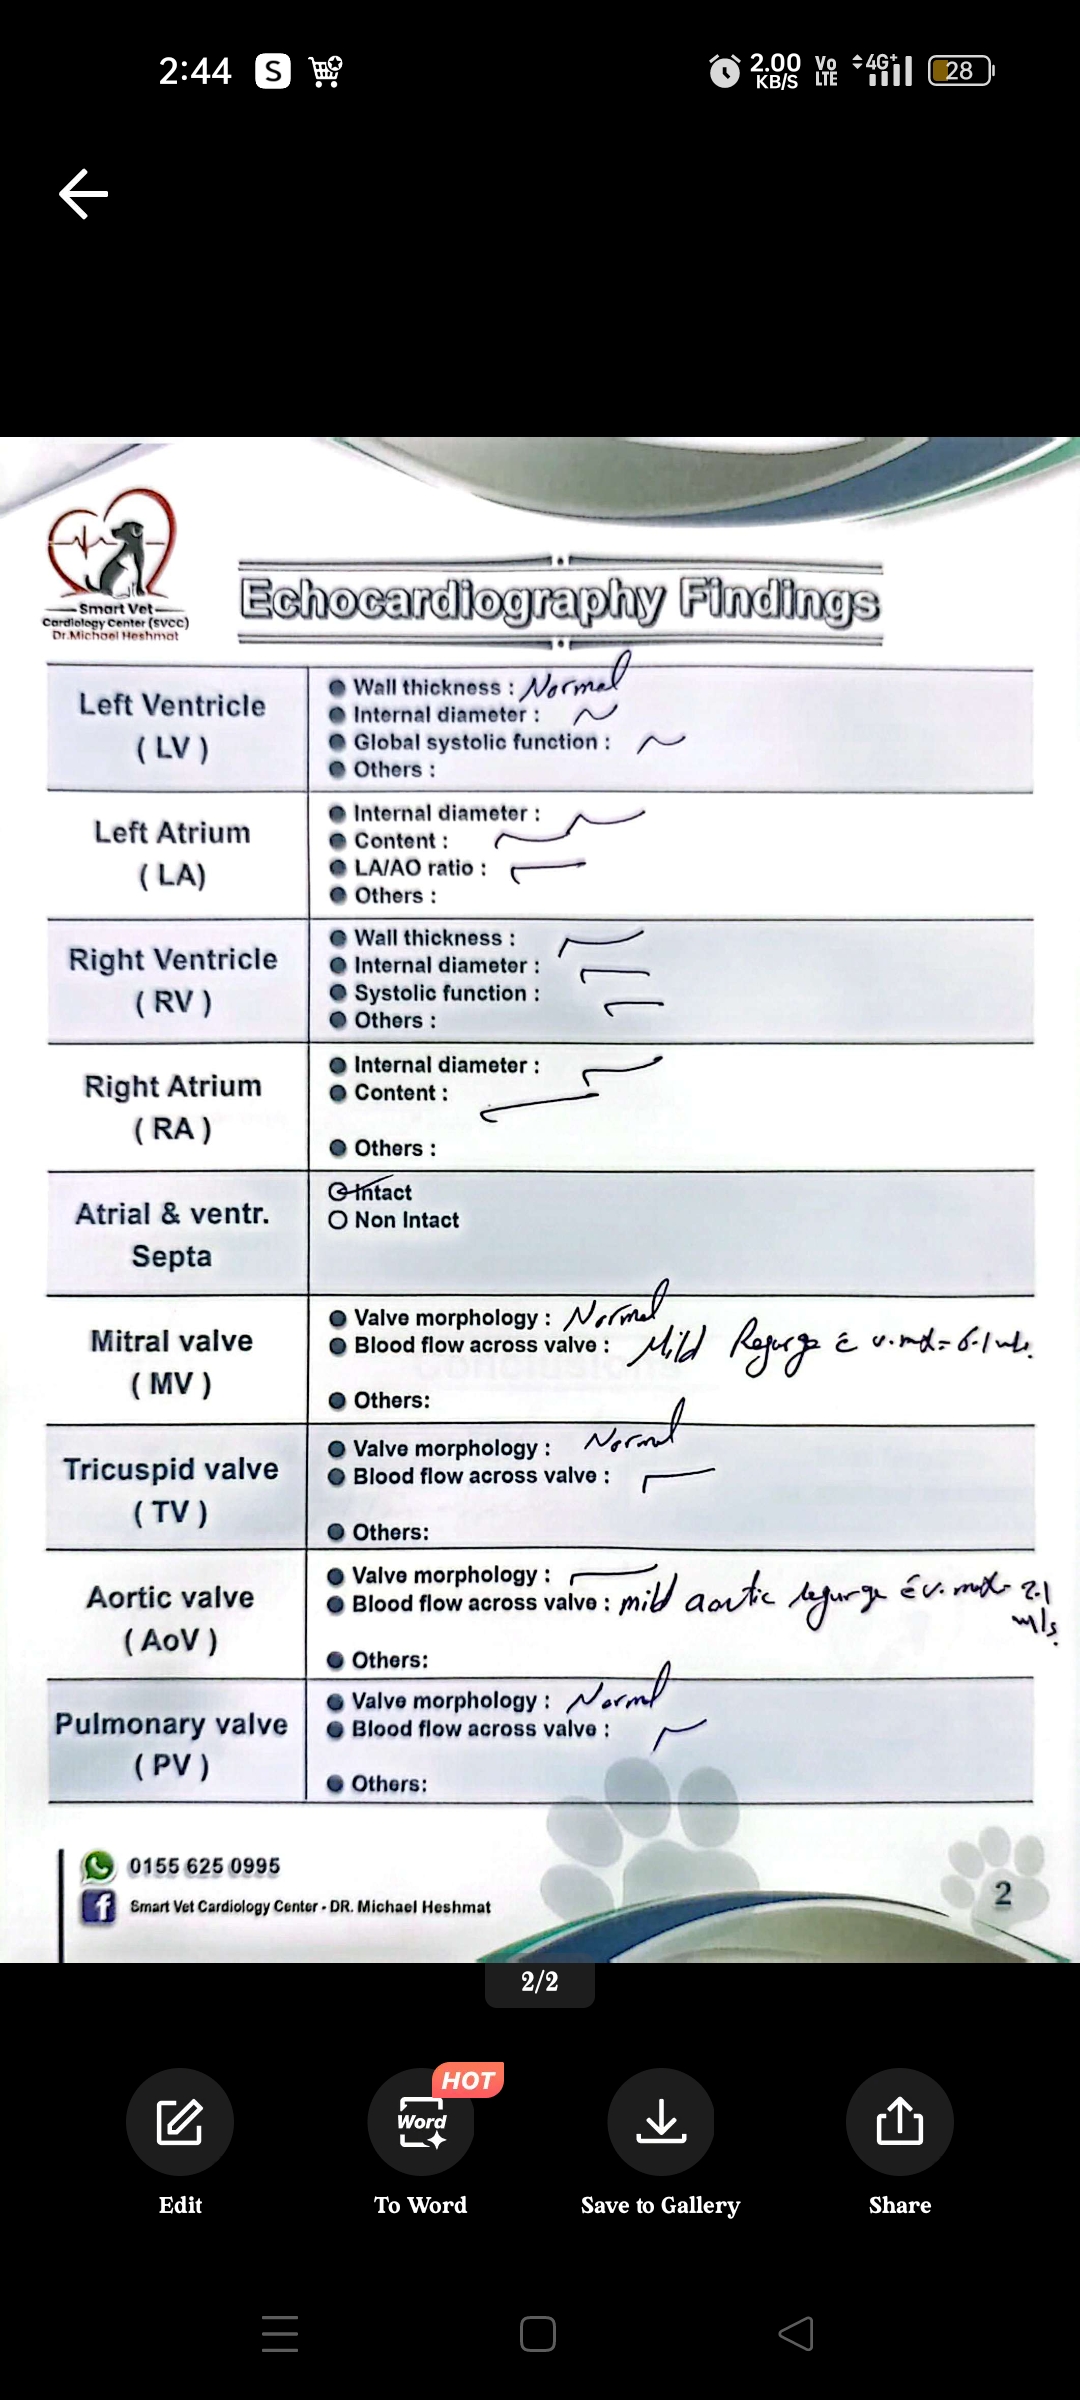 2:44
S
2.00 KB/S
Vo LTE
4G+
28
Smart Vet
Cardiology Center (SVCC)
Dr.Michael Heshmat
Echocardiography Findings
Left Ventricle
( LV )
Wall thickness : Normal
Internal diameter :
Global systolic function :
Others :
Left Atrium
( LA)
Internal diameter :
Content :
LA/AO ratio :
Others :
Right Ventricle
( RV )
Wall thickness :
Internal diameter :
Systolic function :
Others :
Right Atrium
( RA )
Internal diameter :
Content :
Others :
Atrial & ventr.
Septa
Intact
Non Intact
Mitral valve
( MV )
Valve morphology : Normal
Blood flow across valve : Mild Regurge c̄ v.max = 6.1 m/s.
Others:
Tricuspid valve
( TV )
Valve morphology : Normal
Blood flow across valve :
Others:
Aortic valve
( AoV )
Valve morphology :
Blood flow across valve : mild aortic regurge c̄ v.max = 2.1
m/s.
Others:
Pulmonary valve
( PV )
Valve morphology : Normal
Blood flow across valve :
Others:
0155 625 0995
Smart Vet Cardiology Center - DR. Michael Heshmat
2
2/2
HOT
Word
Edit
To Word
Save to Gallery
Share